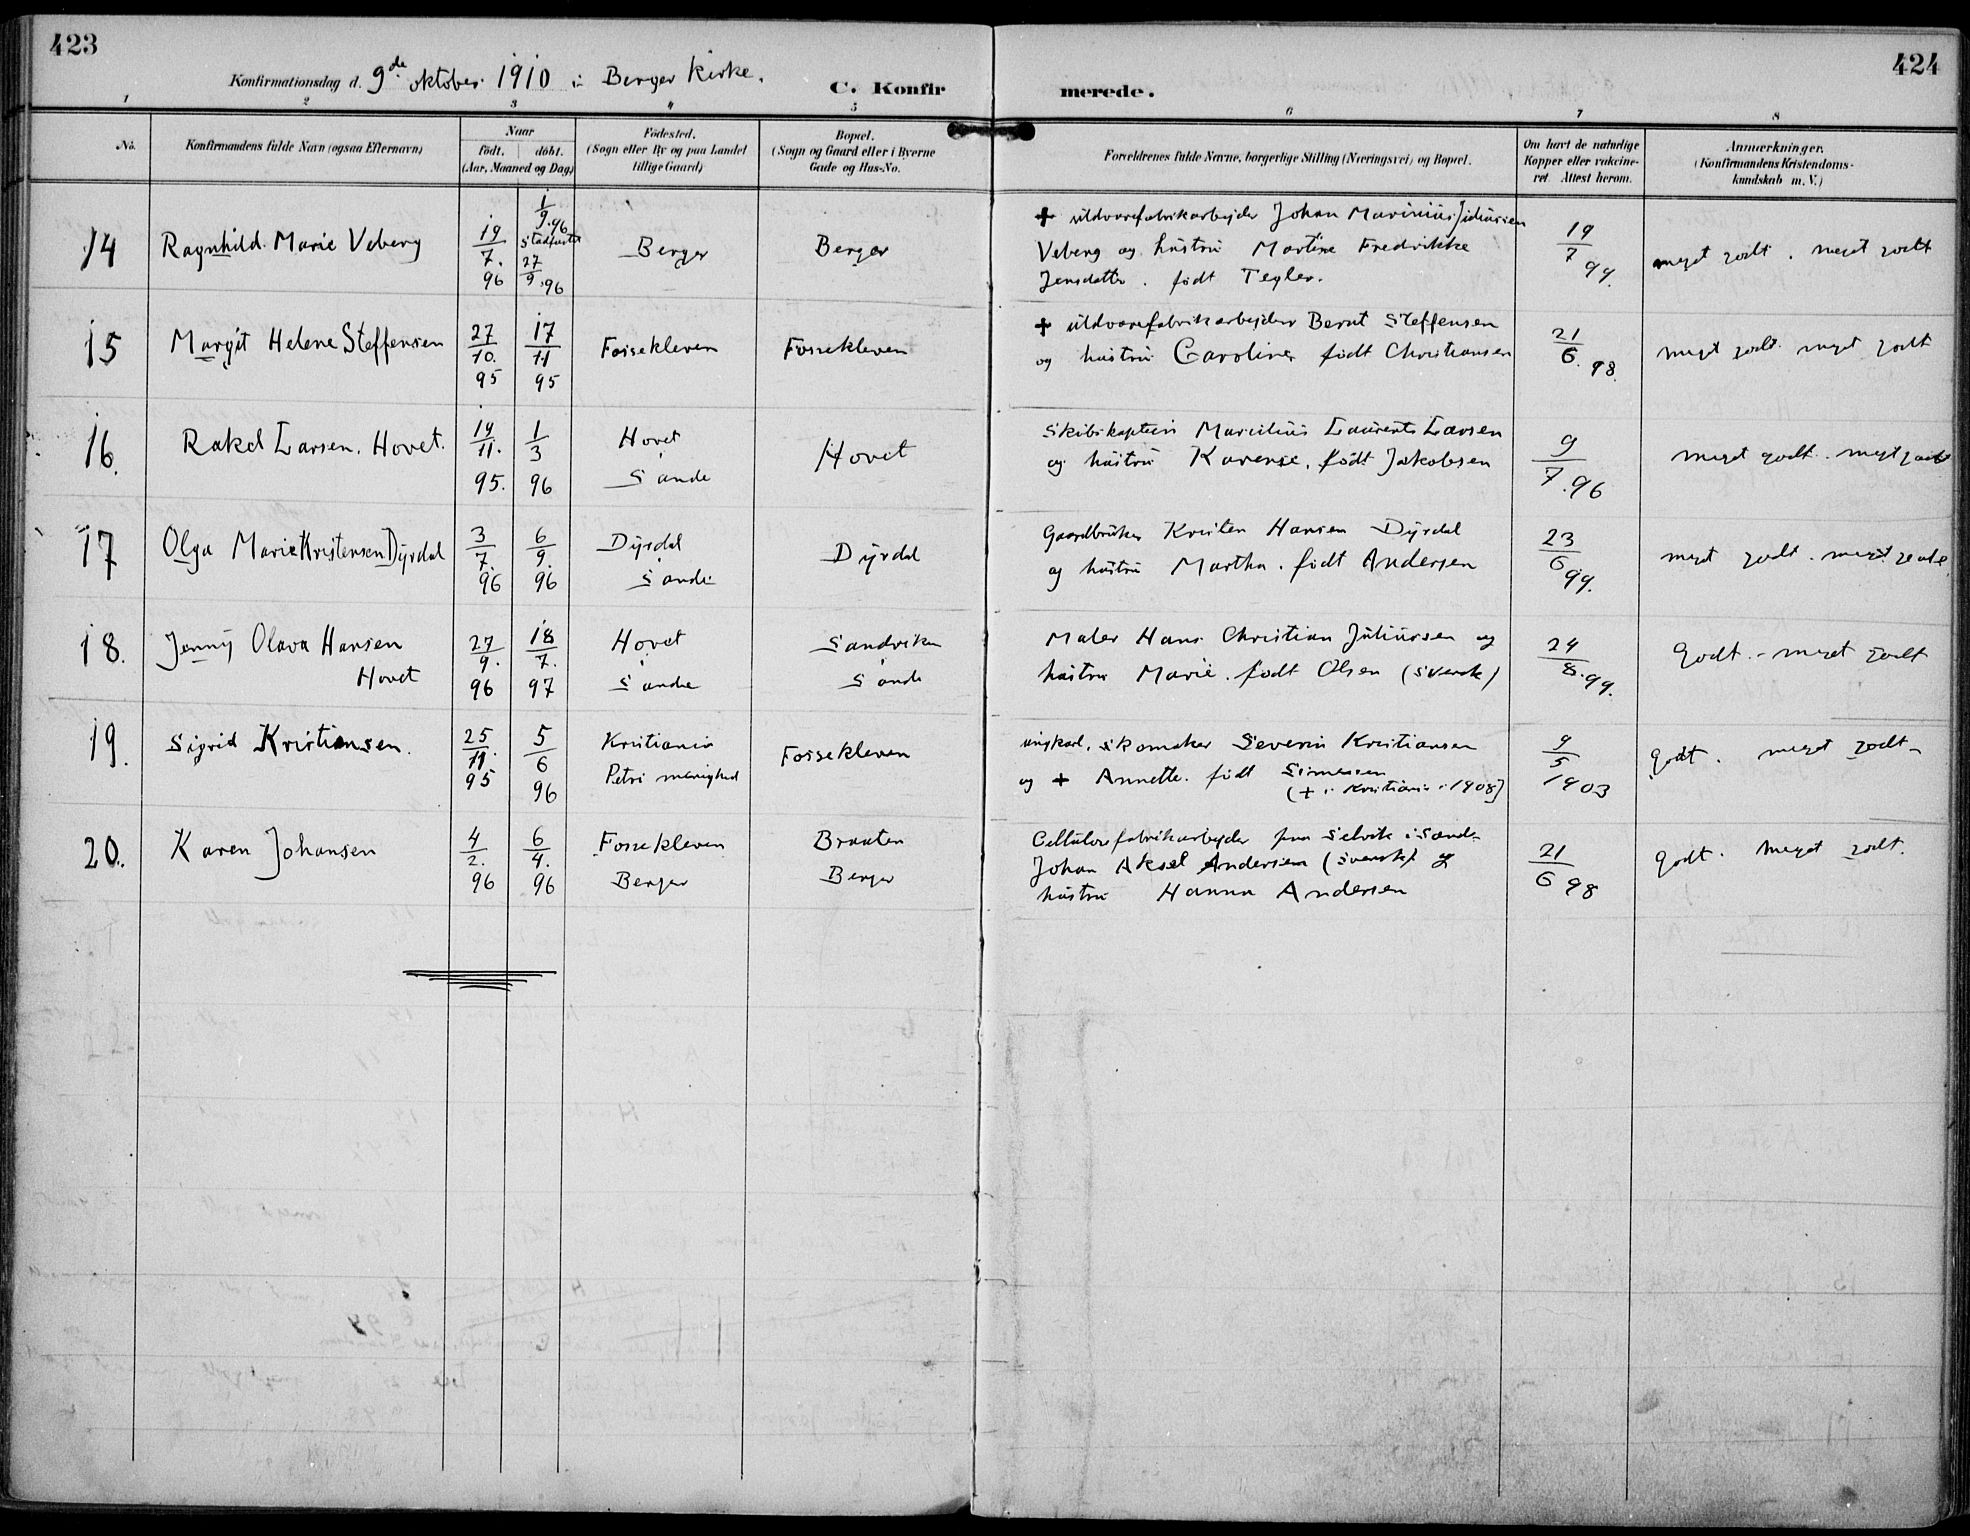 423
424
Konfirmationsdag d. 9de oktober 1910 i Berger Kirke.
C. Konfir merede.
1 2 3 4 5 6 7 8
No.
Konfirmandens fulde Navn (ogsaa Efternavn)
Naar
født. døbt.
(Aar, Maaned og Dag)
Fødested.
(Sogn eller By og paa Landet
tillige Gaard)
Bopæl.
(Sogn og Gaard eller i Byerne
Gade og Hus-No.
Forældrenes fulde Navne, borgerlige Stilling (Næringsvei) og Bopæl.
Om havt de naturlige
Kopper eller vakcine-
ret. Attest herom.
Anmærkninger.
(Konfirmandens Kristendoms-
kundskab m. V.)
14 Ragnhild Marie Veberg
19/7. 96
1/9.96 stadfæstet 27/9.96
Berger
Berger
+ uldvarefabrikarbejder Johan Marinius Juliussen
Veberg og hustru Martine Fredrikke
Jensdatter. født Tegler.
19/7 99.
meget godt. meget godt
15 Margit Helene Steffensen
27/10. 95
17/11 95
Fossekleven
Fossekleven
+ uldvarefabrikarbejder Bernt Steffensen
og hustru Caroline født Christiansen
21/6. 98.
meget godt. meget godt
16. Rakel Larsen. Hovet.
19/11. 95.
1/3 96
Hovet
Sande
Hovet
Skibskaptein Marcelius Laurents Larsen
og hustru Karense. født Jakobsen
9/7.96
meget godt. meget godt
17 Olga Marie Kristensen Dyrdal
3/7. 96
6/9. 96
Dyrdal
Sande
Dyrdal
Gaardbruker Kristen Hansen Dyrdal
og hustru Martha. født Andersen
23/6 99.
meget godt. meget godt.
18. Jenny Olava Hansen
Hovet
27/9. 96
18/7. 97
Hovet
Sande
Sandviken
Sande
Maler Hans Christian Juliussen og
hustru Marie. født Olsen (svensk)
24/8.99.
Godt. - meget godt
19. Sigrid Kristiansen.
25/11. 95
5/6 96
Kristiania
Petri menighed
Fossekleven
ungkarl. skomaker Severin Kristiansen
og + Annette. født Simensen
(+ i Kristiania i 1908)
9/5 1903
godt. meget godt-
20. Karen Johansen
4/2. 96
6/4. 96
Fossekleven
Berger
Braaten
Berger
Cellulosefabrikarbejder paa Selvik i Sande
Johan Aksel Andersen (svensk) og
hustru Hanna Andersen
21/6 98
godt. meget godt.